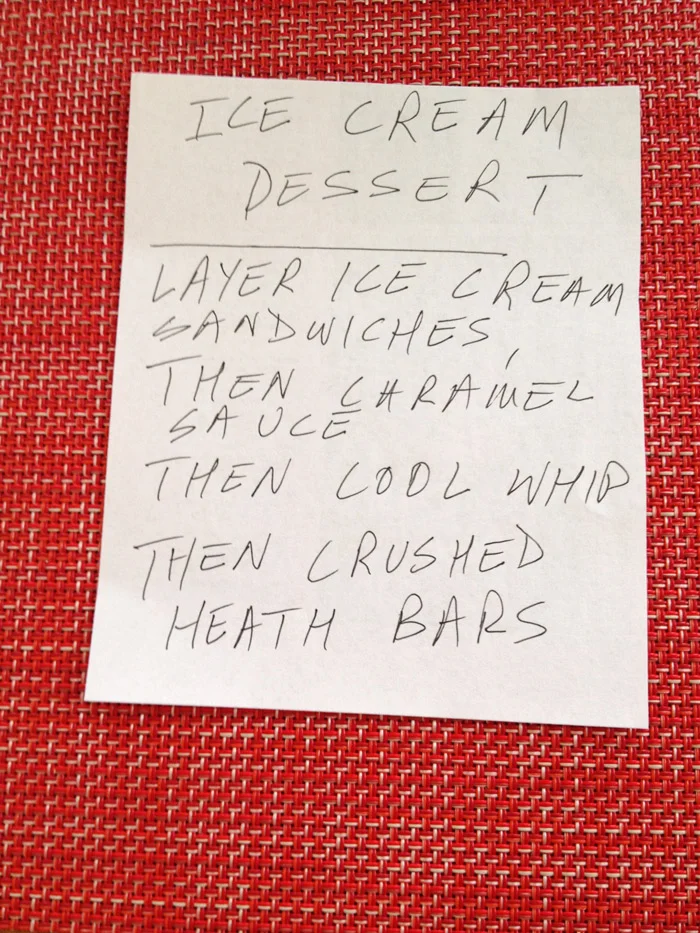 ICE CREAM
DESSERT
LAYER ICE CREAM
SANDWICHES,
THEN CARAMEL
SAUCE
THEN COOL WHIP
THEN CRUSHED
HEATH BARS